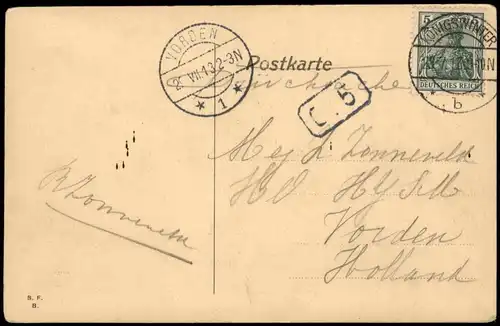 VORDEN
2. VII.13.2-3N
* 1 *
Postkarte
Drucksache
5
KÖNIGSWINTER
b
DEUTSCHES REICH
C 5
Mej L Zonneveld
Vorden
Holland
Zonneveld
B. F.
B.